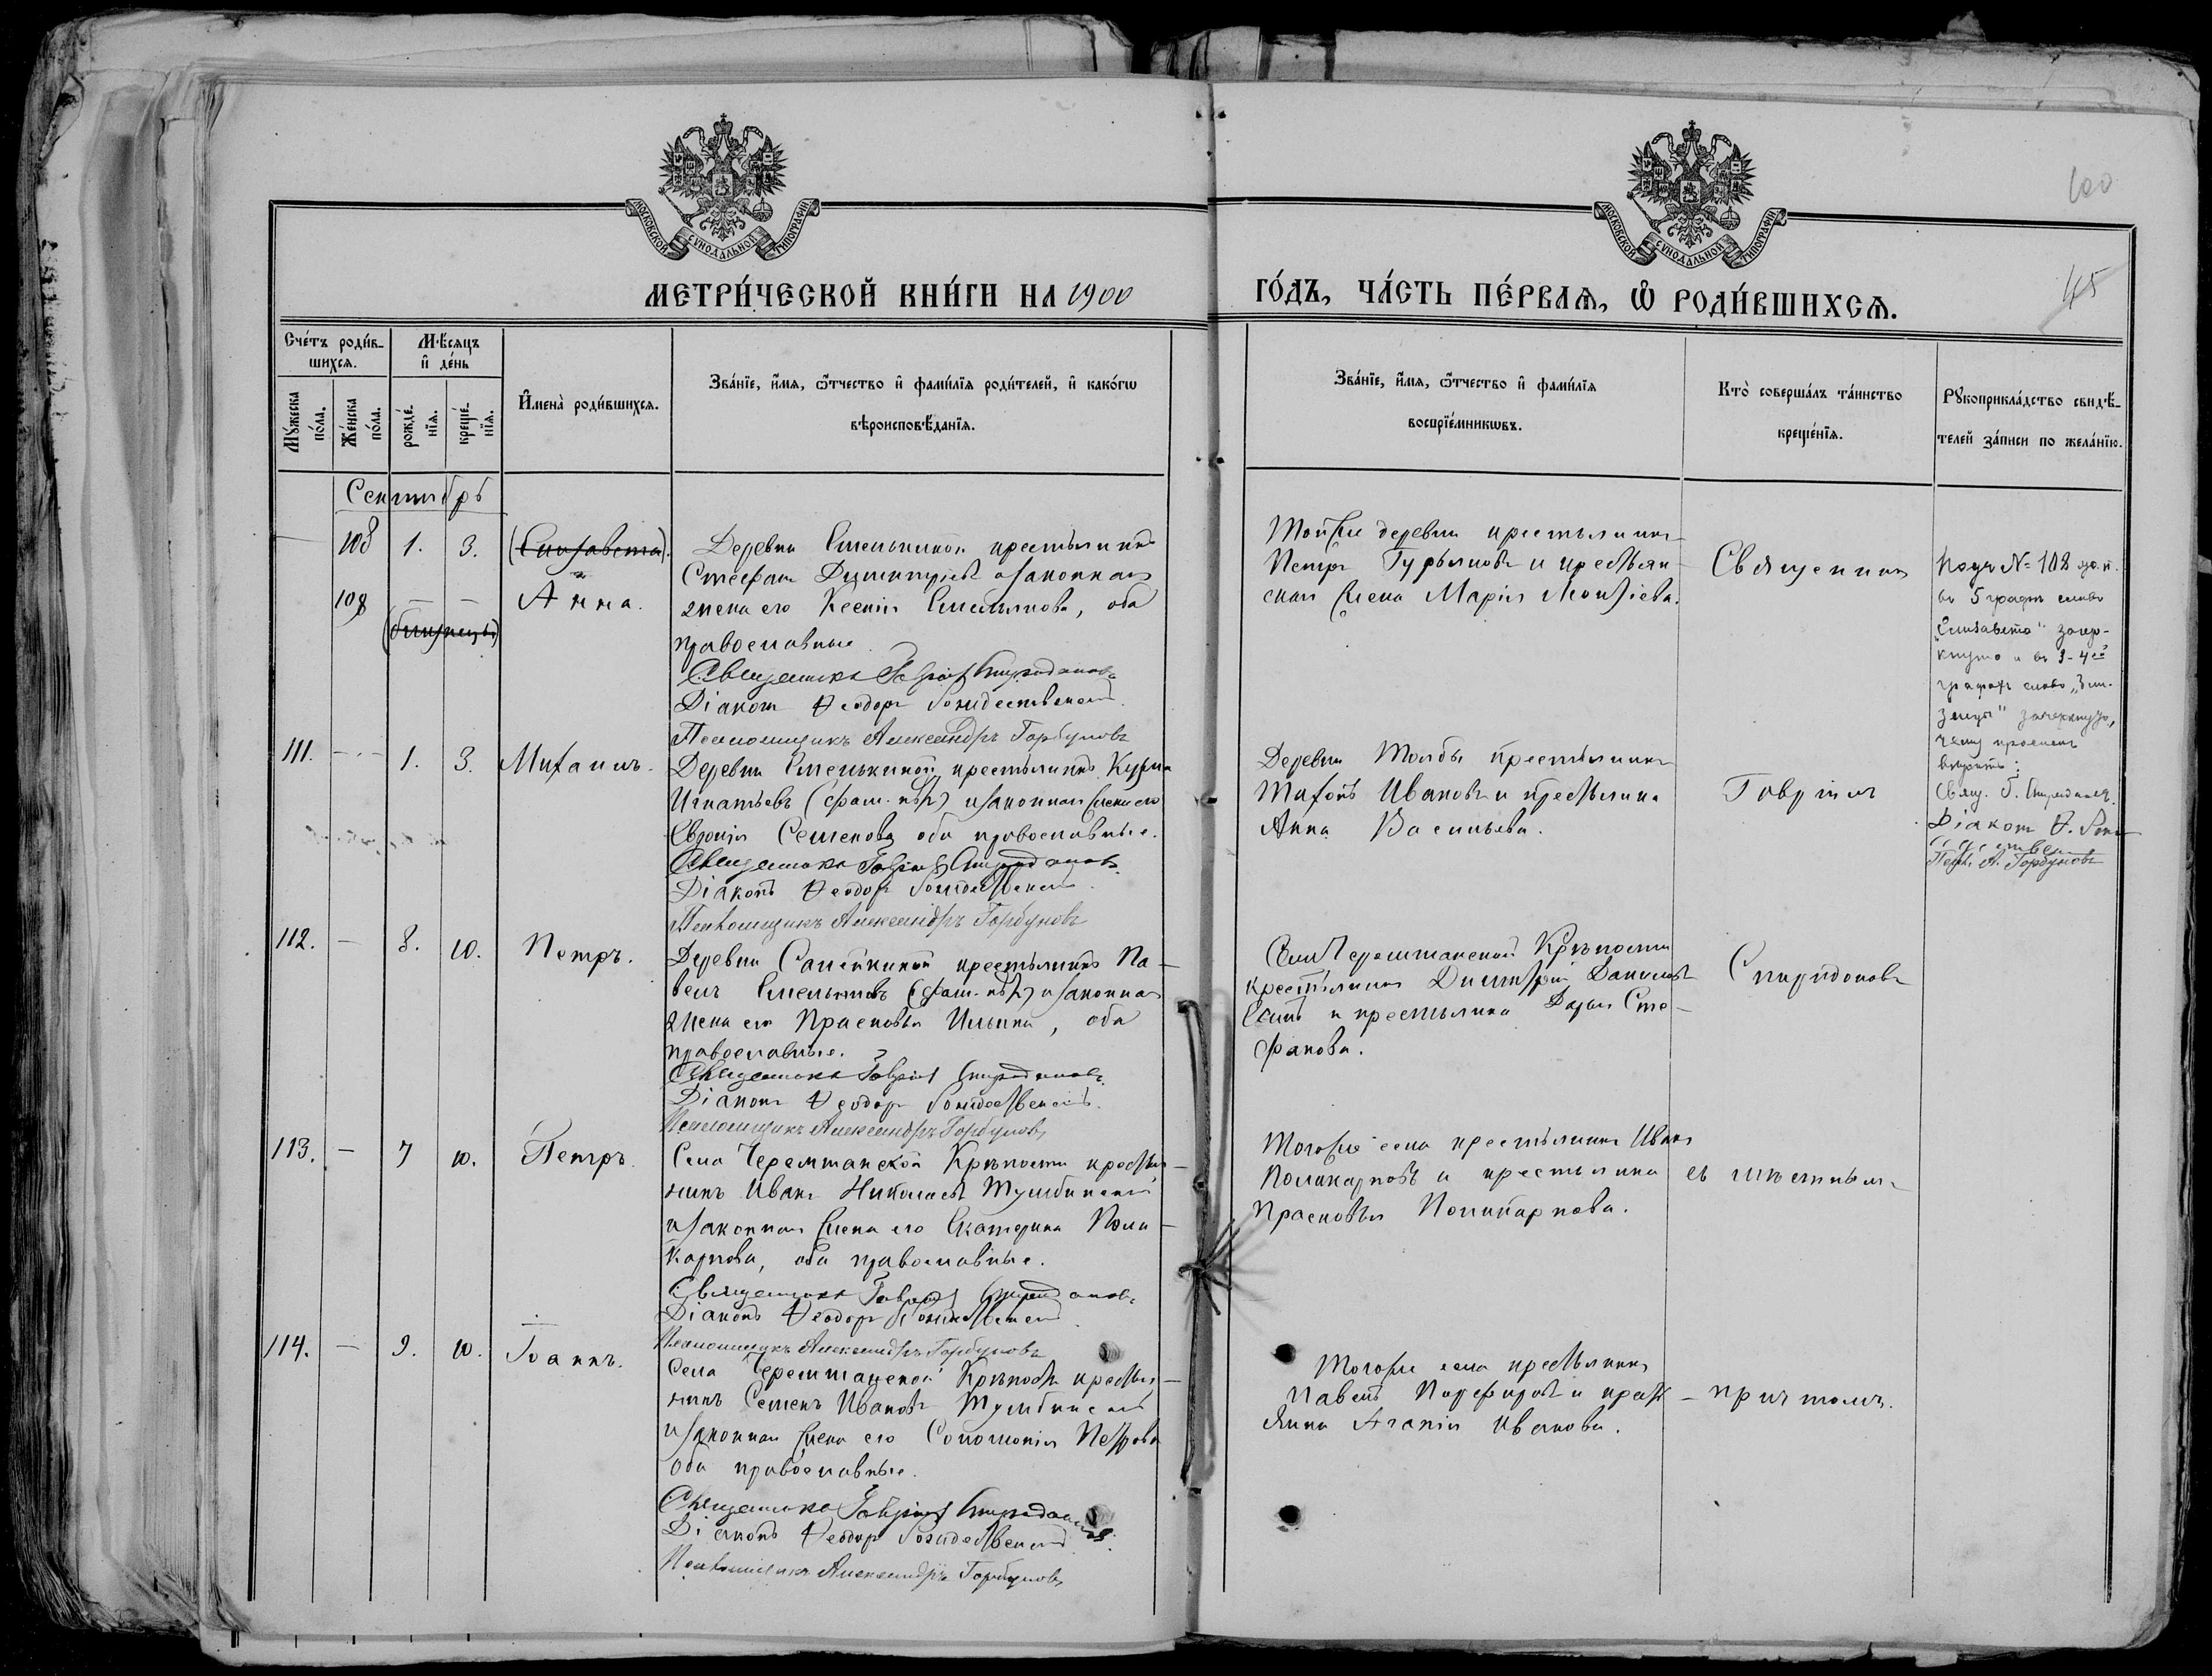 100
45
МОСКОВСКОЙ СѴНОДАЛЬНОЙ ТИПОГРАФІИ
МОСКОВСКОЙ СѴНОДАЛЬНОЙ ТИПОГРАФІИ
МЕТРИ́ЧЕСКОЙ КНИ́ГИ НА 1900
ГО́ДЪ, ЧА́СТЬ ПЕ́РВАѦ, Ѽ РОДИ́ВШИХСѦ.
Сче́тъ роди́в-
шихсѧ.
Мꙋ́жеска по́ла.
Же́нска по́ла.
Мѣ́сѧцъ
и҆ де́нь
рожде́-
нїѧ.
креще́-
нїѧ.
И҆мена̀ роди́вшихсѧ.
Зва́нїе, и҆́мѧ, ѻ҆́тчество и҆ фами́лїѧ роди́телей, и҆ како́гѡ
вѣроисповѣ́данїѧ.
Зва́нїе, и҆́мѧ, ѻ҆́тчество и҆ фами́лїѧ
воспрїе́мникѡвъ.
Кто̀ соверша́лъ та́инство
креще́нїѧ.
Рꙋкоприкла́дство свидѣ́-
телей за́писи по жела́нїю.
Сентябрь
108 1. 3. (Елизавета).
Деревни Емелькиной крестьянинъ
Стефанъ Димитріевъ и законная
109 — — Анна.
(близнецы)
жена его Ксенія Емельянова, оба
православные.
Священникъ Гавріилъ Спиридоновъ
Діаконъ Ѳеодоръ Рождественскій.
Псаломщикъ Александръ Горбуновъ
Той же деревни крестьянинъ
Петръ Гурьяновъ и крестьян-
ская жена Марія Моисіева.
Священникъ
подъ № 108 
въ 5 графѣ слово
"Елизавета" зачер-
кнуто и въ 3-4ой
графахъ слово "близ-
нецы" зачеркнуто,
Свящ. Г. Спиридоновъ.
Діаконъ Ѳ. Рож-
дественскій
Псал. А. Горбуновъ
111. — 1. 3. Михаилъ.
Деревни Емелькиной крестьянинъ Кузма
Игнатьевъ (фам. нѣтъ) и законная жена его
Семенова оба православные.
Священникъ Гавріилъ Спиридоновъ.
Діаконъ Ѳеодоръ Рождественскій.
Псаломщикъ Александръ Горбуновъ
Деревни крестьянинъ
Тихонъ Ивановъ и крестьянка
Анна Васильева.
Гавріилъ
112. — 8. 10. Петръ.
Деревни Санейкиной крестьянинъ Па-
велъ Емельяновъ (фам. нѣтъ) и законная
жена его Прасковья Ильина, оба
православные.
Священникъ Гавріилъ Спиридоновъ.
Діаконъ Ѳеодоръ Рождественскій.
Псаломщикъ Александръ Горбуновъ
Села Черемшанской Крѣпости
крестьянинъ Димитрій Даниловъ
и крестьянка Дарья Сте-
фанова.
Спиридоновъ
113. — 7 10. Петръ.
Села Черемшанской Крѣпости крестья-
нинъ Иванъ Николаевъ Тумбинскій
и законная жена его Екатерина Поли-
карпова, оба православные.
Священникъ Гавріилъ Спиридоновъ
Діаконъ Ѳеодоръ Рождественскій
Псаломщикъ Александръ Горбуновъ
Того же села крестьянинъ Иванъ
Поликарповъ и крестьянка
Прасковья Поликарпова.
съ мѣстнымъ
114. — 9. 10. Іоаннъ.
Села Черемшанской Крѣпости крестья-
нинъ Семенъ Ивановъ Тумбинскій
и законная жена его Соломонія Петрова
оба православные.
Священникъ Гавріилъ Спиридоновъ.
Діаконъ Ѳеодоръ Рождественскій.
Псаломщикъ Александръ Горбуновъ
Того же села крестьянинъ
Павелъ Порфировъ и крест-
янка Агапія Иванова.
причтомъ.